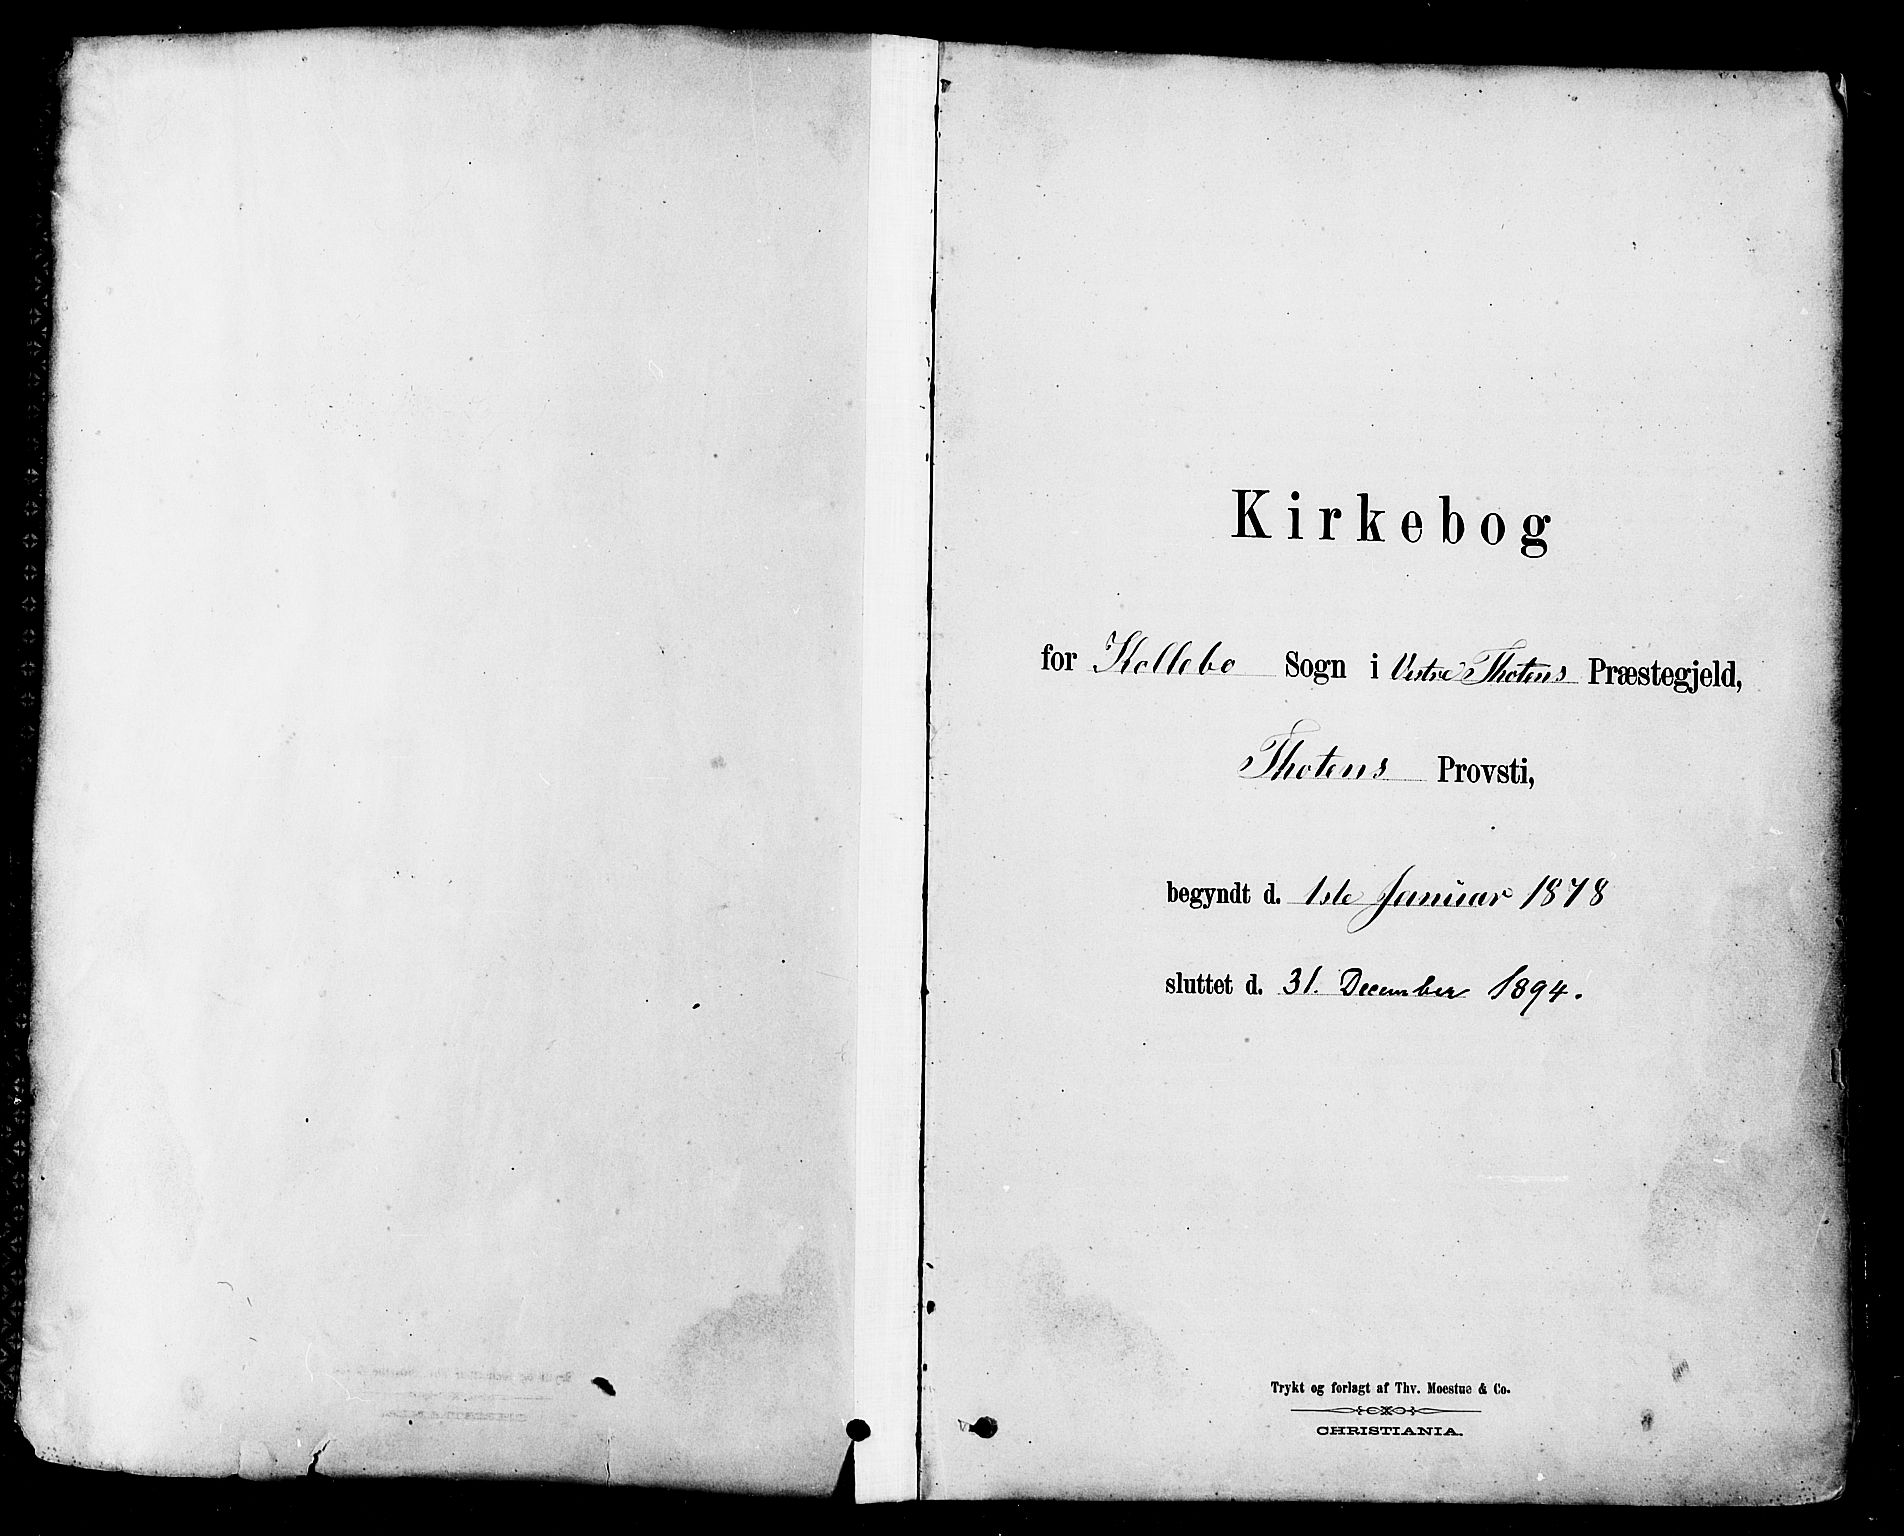 Kirkebog
for Kollebo Sogn i Vestre Thotens Præstegjeld,
Thotens Provsti,
begyndt d. 1ste Januar 1878
sluttet d. 31. December 1894.
Trykt og forlagt af Thv. Moestue & Co.
CHRISTIANIA.